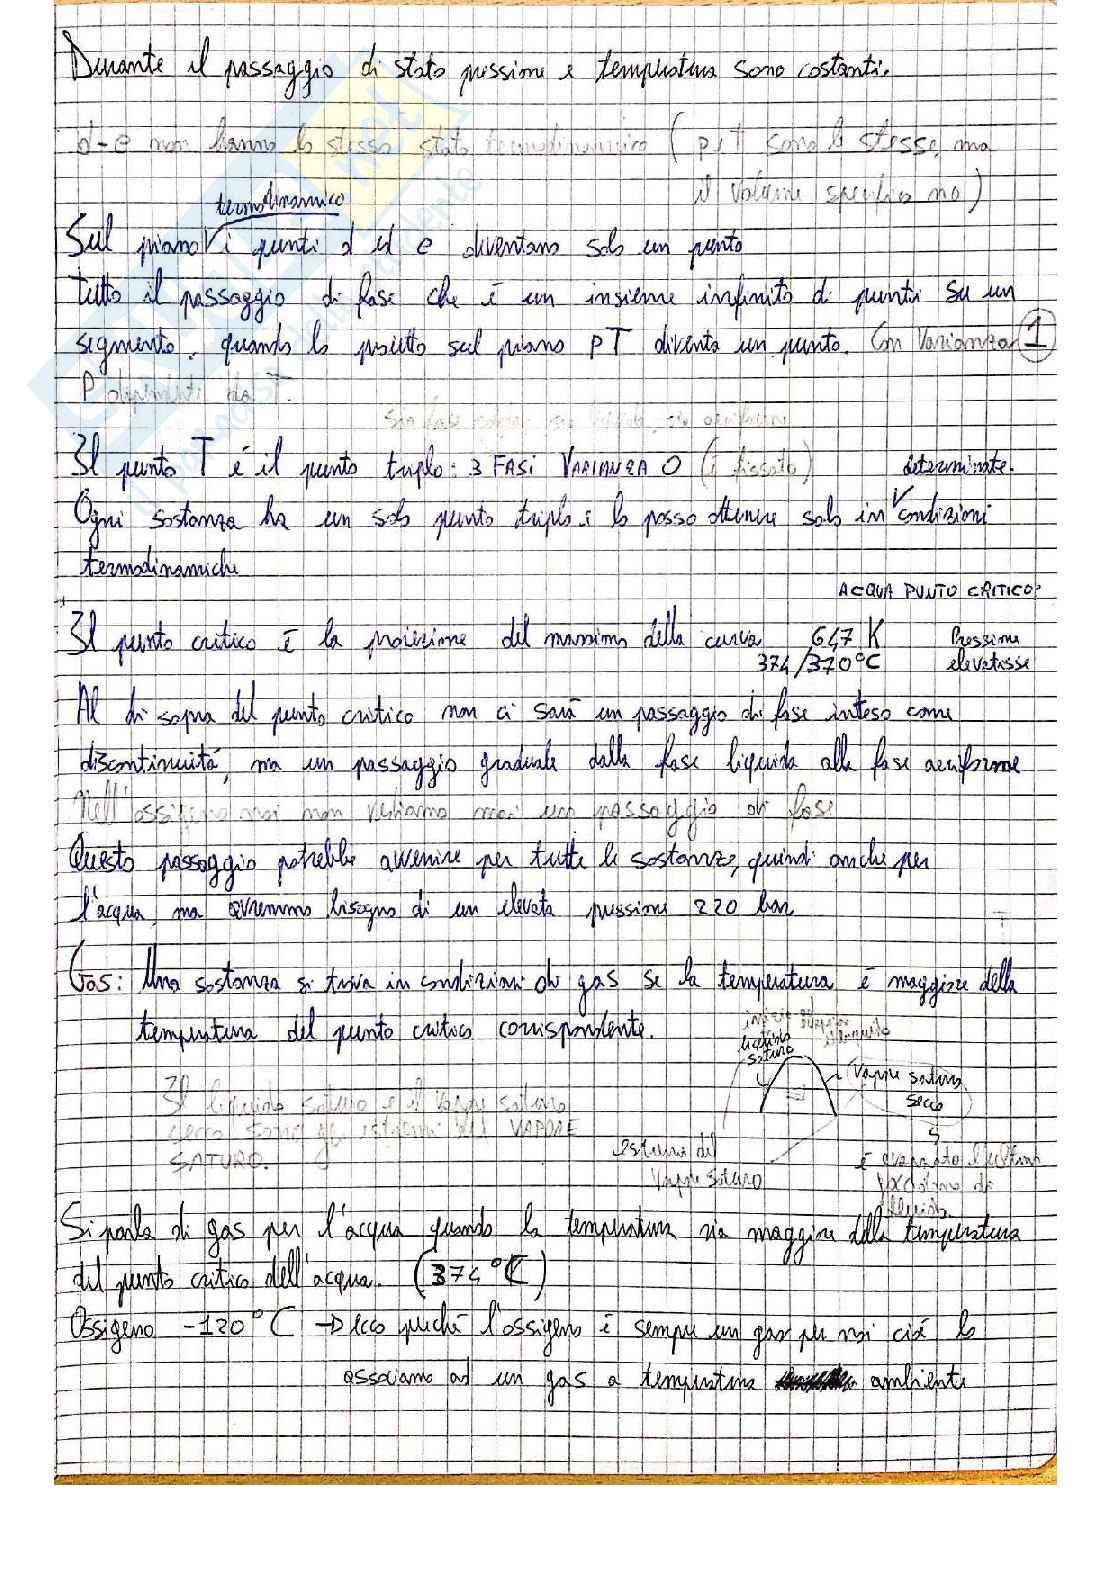 Durante il passaggio di stato pressione e temperatura sono costanti.
d-e non hanno lo stesso stato termodinamico (p,T sono le stesse, ma
il volume specifico no)
termodinamico
Sul piano i punti d ed e diventano solo un punto
tutto il passaggio di fase che è un insieme infinito di punti su un
segmento, quando lo proietto sul piano PT diventa un punto. Con Varianza 1
P dipende da T.
sia fase solida, sia liquida, sia
Il punto T è il punto triplo: 3 FASI VARIANZA 0 (è fissato)
determinate.
Ogni sostanza ha un solo punto triplo e lo posso ottenere solo in condizioni
termodinamiche
ACQUA PUNTO CRITICO:
Il punto critico è la proiezione del massimo della curva 647 K Pressione
374/370°C elevatissi
Al di sopra del punto critico non ci sarà un passaggio di fase inteso come
discontinuità, ma un passaggio graduale dalla fase liquida alla fase aeriforme
Nell'ossigeno noi non vediamo mai un passaggio di fase
Questo passaggio potrebbe avvenire per tutte le sostanze, quindi anche per
l'acqua, ma avremmo bisogno di un elevata pressione 220 bar
Gas: Una sostanza si trova in condizioni di gas se la temperatura è maggiore della
temperatura del punto critico corrispondente.
liquido
saturo
Vapore saturo
secco
Il liquido saturo e il vapore saturo
secco sono gli estremi del VAPORE
SATURO.
estremo del
Vapore saturo
è evaporato l'ultima
Si parla di gas per l'acqua quando la temperatura sia maggiore della temperatura
del punto critico dell'acqua. (374°C)
Ossigeno -120°C → ecco perché l'ossigeno è sempre un gas per noi cioè lo
associamo ad un gas a temperatura ambiente